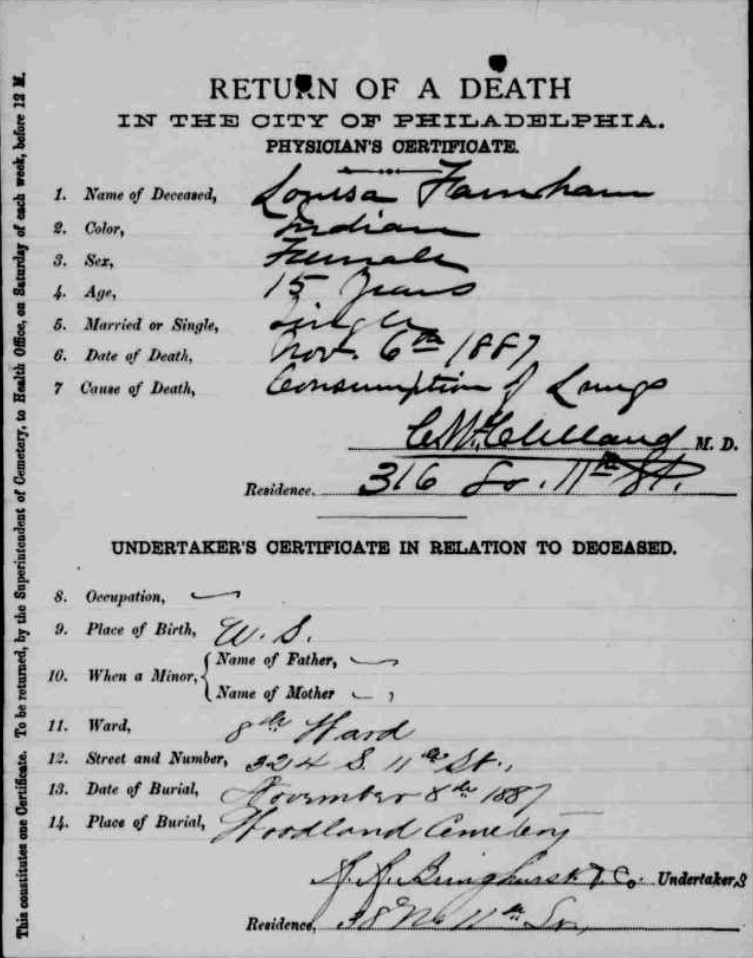 RETURN OF A DEATH
IN THE CITY OF PHILADELPHIA.
PHYSICIAN'S CERTIFICATE.
1. Name of Deceased, Louisa Farnham
2. Color, Indian
3. Sex, Female
4. Age, 15 Years
5. Married or Single, Single
6. Date of Death, Nov. 6th 1887
7 Cause of Death, Consumption of Lungs
C M Clelland M. D.
Residence, 316 So. 11th St.
UNDERTAKER'S CERTIFICATE IN RELATION TO DECEASED.
8. Occupation, —
9. Place of Birth, U. S.
10. When a Minor, { Name of Father, —
Name of Mother —
11. Ward, 8th Ward
12. Street and Number, 324 S. 11th St.,
13. Date of Burial, November 8th 1887
14. Place of Burial, Woodland Cemetery
Bringhurst & Co. Undertaker,s
Residence, 38 No 11th
This constitutes one Certificate. To be returned, by the Superintendent of Cemetery, to Health Office, on Saturday of each week, before 12 M.